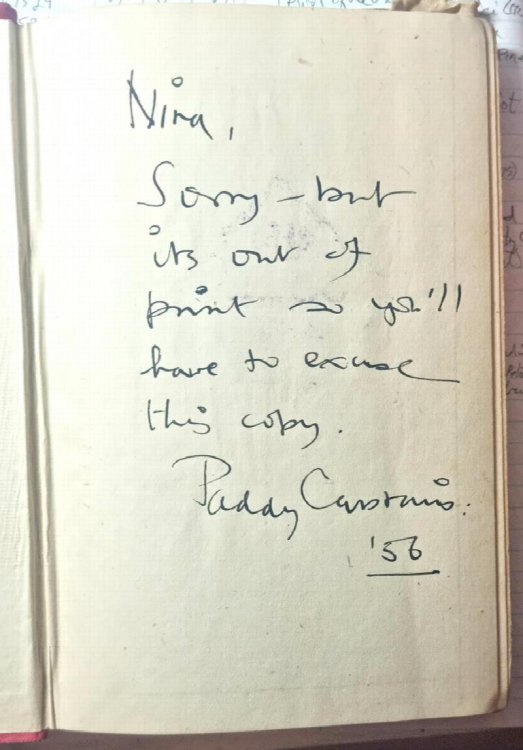 Nina,
Sorry – but
its out of
print so you'll
have to excuse
this copy.
Paddy Carstairs.
'56